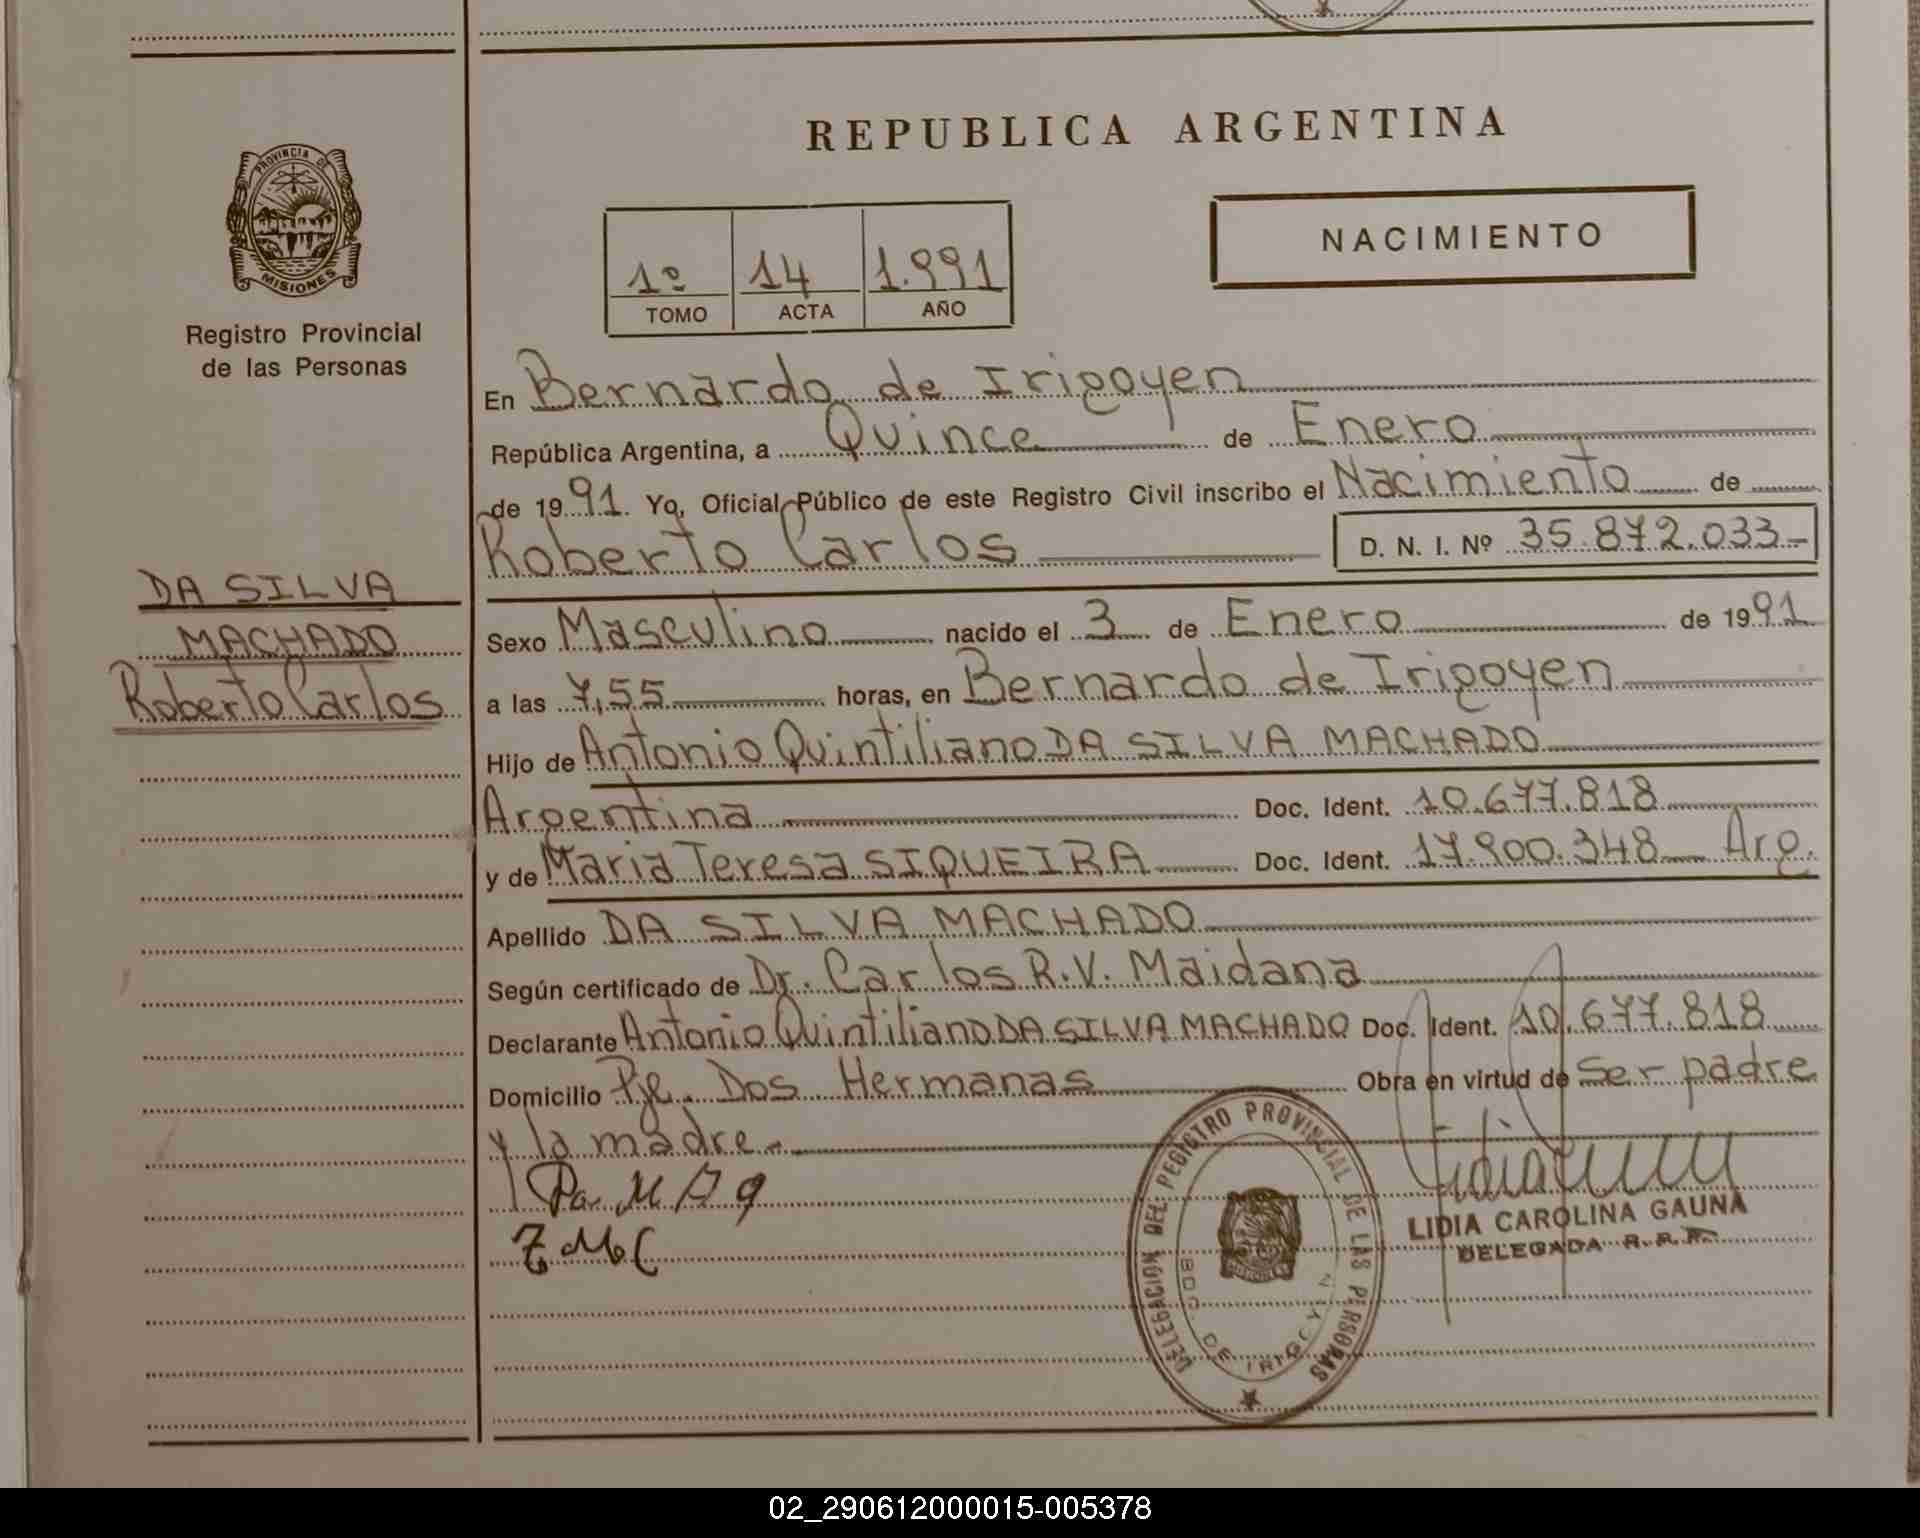 PROVINCIA DE
MISIONES
Registro Provincial
de las Personas
DA SILVA
MACHADO
Roberto Carlos
REPUBLICA ARGENTINA
NACIMIENTO
1º 14 1.991
TOMO ACTA AÑO
En Bernardo de Irigoyen
República Argentina, a Quince de Enero
de 1991. Yo, Oficial Público de este Registro Civil inscribo el Nacimiento de
Roberto Carlos D. N. I. Nº 35.872.033-
Sexo Masculino nacido el 3 de Enero de 1991
a las 7,55 horas, en Bernardo de Irigoyen
Hijo de Antonio Quintiliano DA SILVA MACHADO
Argentina Doc. Ident. 10.677.818
y de Maria Teresa SIQUEIRA Doc. Ident. 17.900.348 Arg.
Apellido DA SILVA MACHADO
Según certificado de Dr. Carlos R.V. Maidana
Declarante Antonio Quintiliano DA SILVA MACHADO Doc. Ident. 10.677.818
Domicilio Pje. Dos Hermanas Obra en virtud de Ser padre
y la madre.-
LIDIA CAROLINA GAUNA
DELEGADA R.P.P.
DELEGACION DEL REGISTRO PROVINCIAL DE LAS PERSONAS
BDO. DE IRIGOYEN
02_290612000015-005378